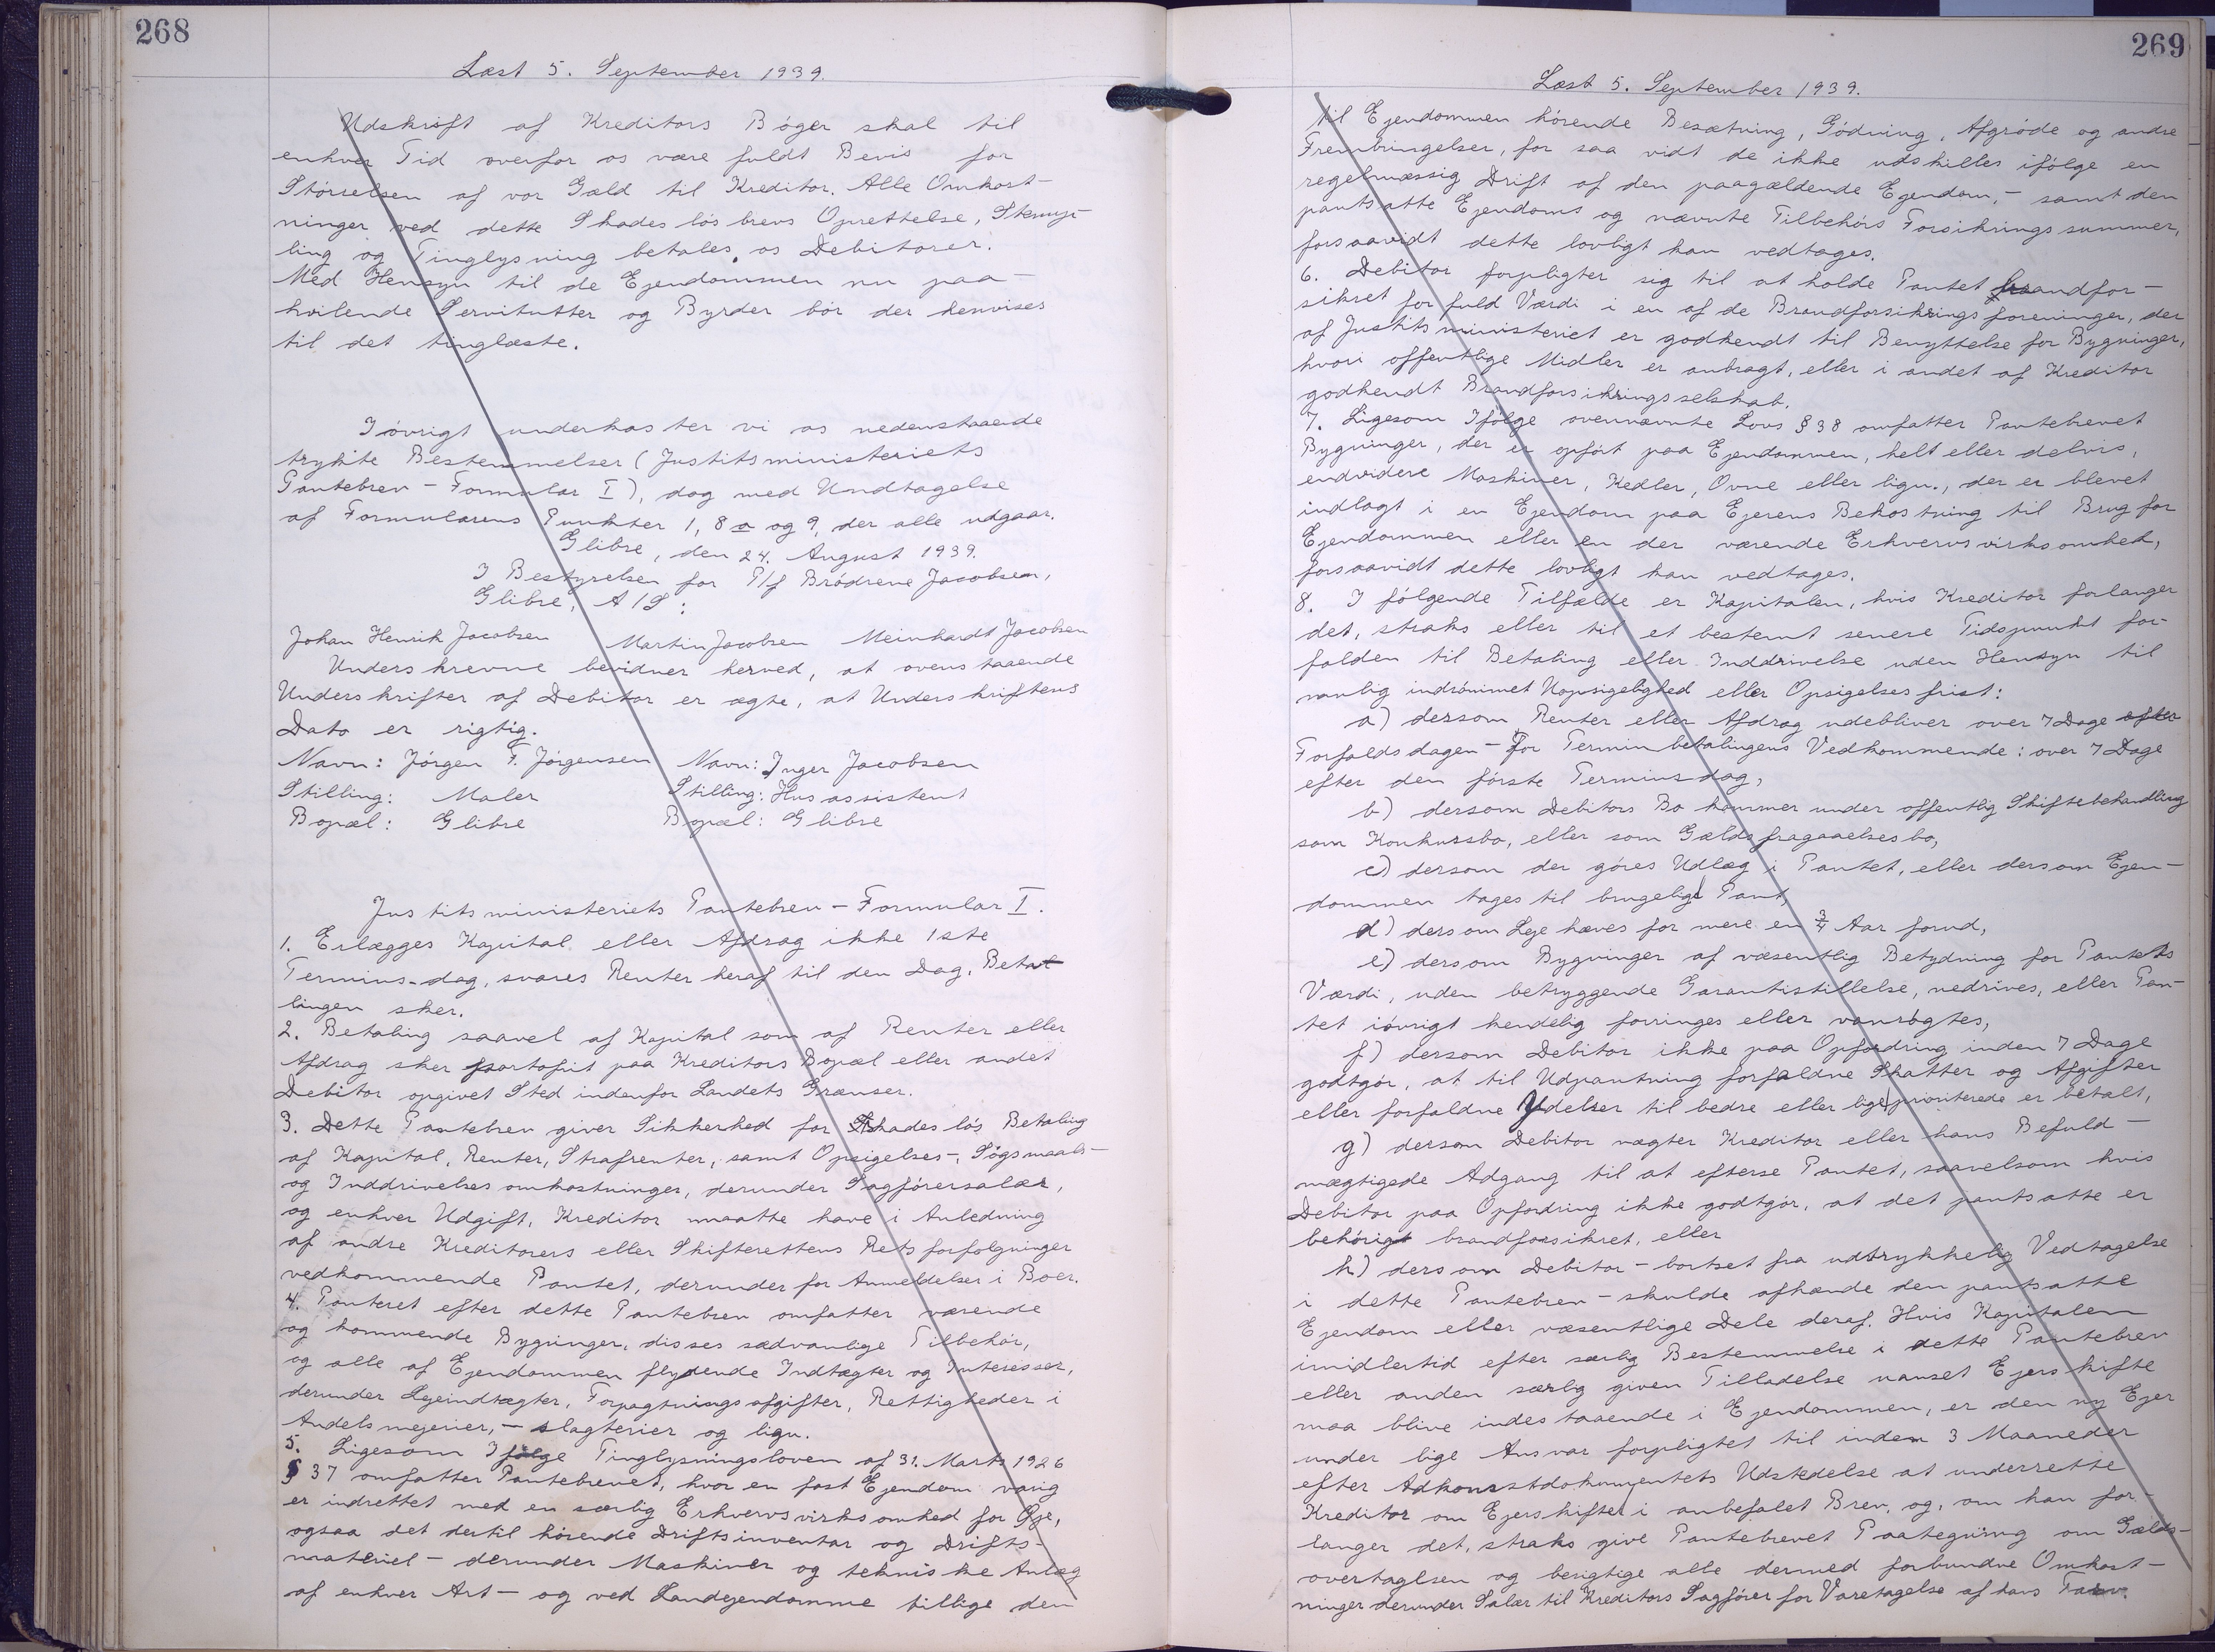 268
Læst 5. September 1939.
Udskrift af Kreditors Bøger skal til
enhver Tid overfor os være fuldt Bevis for
Størrelsen af vor Gæld til Kreditor. Alle Omkost-
ninger ved dette Skadesløsbrevs Oprettelse, Stemp-
ling og Tinglysning betales. os Debitorer.
Med Hensyn til de Ejendommen nu paa-
hvilende Servitutter og Byrder bør der henvises
til det tinglæste.
Iøvrigt underkaster vi os nedenstaaende
trykte Bestemmelser (Justitsministeriets
Pantebrev - Formular I), dog med Undtagelse
af Formularens Punkter 1, 8 a og 9, der alle udgaar.
Glibre, den 24. August 1939.
I Bestyrelsen for P/f Brødrene Jacobsen,
Glibre, A/S:
Johan Henrik Jacobsen Martin Jacobsen Meinhardt Jacobsen
Underskrevne bevidner herved, at ovenstaaende
Underskrifter af Debitor er ægte, at Underskriftens
Dato er rigtig.
Navn: Jørgen F. Jørgensen Navn: Inger Jacobsen
Stilling: Maler Stilling: Husassistent
Bopæl: Glibre Bopæl: Glibre
Justitsministeriets Pantebrev - Formular I.
1. Erlægges Kapital eller Afdrag ikke 1ste
Termins-dag, svares Renter heraf til den Dag, Beta
lingen sker.
2. Betaling saavel af Kapital som af Renter eller
Afdrag sker portofrit paa Kreditors Bopæl eller andet
Debitor opgivet Sted indenfor Landets Grænser.
3. Dette Pantebrev giver Sikkerhed for Skadesløs Betaling
af Kapital, Renter, Strafrenter, samt Opsigelses-, Søgsmaals-
og Inddrivelsesomkostninger, derunder Sagførersalær,
og enhver Udgift, Kreditor maatte have i Anledning
af andre Kreditorers eller Skifterettens Retsforfølgninger
vedkommende Pantet, derunder for Anmeldelser i Boer.
4. Panteret efter dette Pantebrev omfatter værende
og kommende Bygninger, disses sædvanlige Tilbehør,
og alle af Ejendommen flydende Indtægter og Interesser,
derunder Lejeindtægter, Forpagtningsafgifter, Rettigheder i
Andelsmejerier, - slagterier og lign.
5. Ligesom Ifølge Tinglysningsloven af 31. Marts 1926
§ 37 omfatter Pantebrevet, hvor en fast Ejendom varig
er indrettet med en særlig Erhvervsvirksomhed for Øje,
ogsaa det dertil hørende Driftsinventar og Drifts-
materiel - derunder Maskiner og tekniske Anlæg
af enhver Art - og ved Landejendomme tillige den
269
Læst 5. September 1939.
til Ejendommen hørende Besætning, Gødning, Afgrøde og andre
Frembringelser, for saa vidt de ikke udskilles ifølge en
regelmæssig Drift af den paagældende Ejendom, - samt den
pantsatte Ejendoms og nævnte Tilbehørs Forsikringssummer,
forsaavidt dette lovligt kan vedtages.
6. Debitor forpligter sig til at holde Pantet brandfor-
sikret for fuld Værdi i en af de Brandforsikringsforeninger, der
af Justitsministeriet er godkendt til Benyttelse for Bygninger,
hvori offentlige Midler er anbragt, eller i andet af Kreditor
godkendt Brandforsikringsselskab.
7. Ligesom Ifølge ovennævnte Lovs § 38 omfatter Pantebrevet
Bygninger, der er opført paa Ejendommen, helt eller delvis,
endvidere Maskiner, Kedler, Ovne eller lign., der er blevet
indlagt i en Ejendom paa Ejerens Bekostning til Brug for
Ejendommen eller en der værende Erhvervsvirksomhed,
forsaavidt dette lovligt kan vedtages.
8. I følgende Tilfælde er Kapitalen, hvis Kreditor forlanger
det, straks eller til et bestemt senere Tidspunkt for-
falden til Betaling eller Inddrivelse uden Hensyn til
mulig indrømmet Uopsigelighed eller Opsigelsesfrist:
a) dersom Renter eller Afdrag udebliver over 7 Dage efter
Forfaldsdagen - for Terminbetalingens Vedkommende: over 7 Dage
efter den første Terminsdag,
b) dersom Debitors Bo kommer under offentlig Skiftebehandling
som Konkursbo, eller som Gældsfragaaelsesbo,
c) dersom der gøres Udlæg i Pantet, eller dersom Ejen-
dommen tages til brugeligt Pant,
d) dersom Leje hæves for mere en 3/4 Aar forud,
e) dersom Bygninger af væsentlig Betydning for Pantets
Værdi, uden betryggende Garantistillelse, nedrives, eller Pan-
tet iøvrigt kendelig forringes eller vanrøgtes,
f) dersom Debitor ikke paa Opfordring inden 7 Dage
godtgør, at til Udpantning forfaldne Skatter og Afgifter
eller forfaldne Ydelser til bedre eller ligeprioriterede er betalt,
g) dersom Debitor nægter Kreditor eller hans Befuld-
mægtigede Adgang til at efterse Pantet, saavelsom hvis
Debitor paa Opfordring ikke godtgør, at det pantsatte er
behørigt brandforsikret, eller
h) dersom Debitor - bortset fra udtrykkelig Vedtagelse
i dette Pantebrev - skulde afhænde den pantsatte
Ejendom eller væsentlige Dele deraf. Hvis Kapitalen
imidlertid efter særlig Bestemmelse i dette Pantebrev
eller anden særlig given Tilladelse uanset Ejerskifte
maa blive indestaaende i Ejendommen, er den ny Ejer
under lige Ansvar forpligtet til inden 3 Maaneder
efter Adkomstdokumentets Udstedelse at underrette
Kreditor om Ejerskiftet i anbefalet Brev, og, om han for-
langer det, straks give Pantebrevet Paategning om Gælds-
overtaglsen og berigtige alle dermed forbundne Omkost-
ninger derunder Salær til Kreditors Sagfører for Varetagelse af hans Tarv.